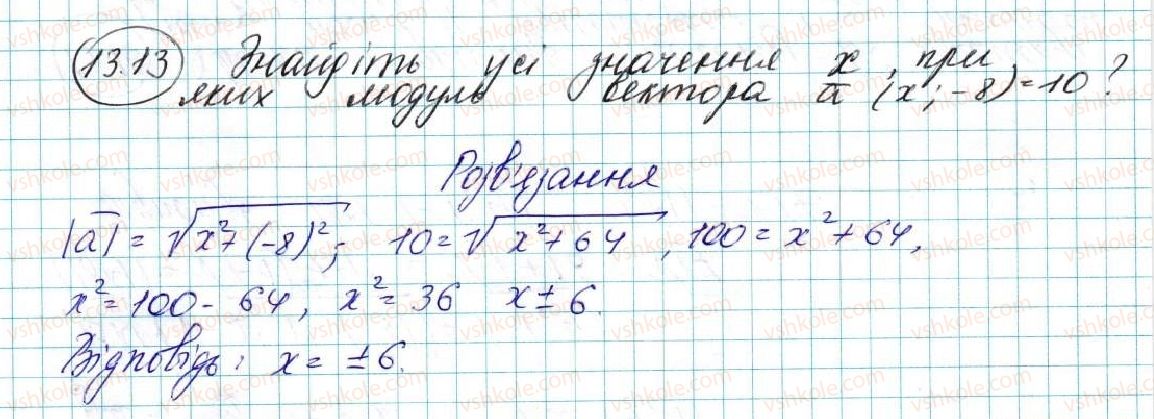 13.13 Знайдіть усі значення x, при
яких модуль вектора a̅ (x; -8) = 10?
Розв'язання
|a̅| = √(x²+(-8)²); 10 = √(x²+64), 100 = x²+64,
x² = 100 - 64, x² = 36 x ± 6.
Відповідь: x = ±6.